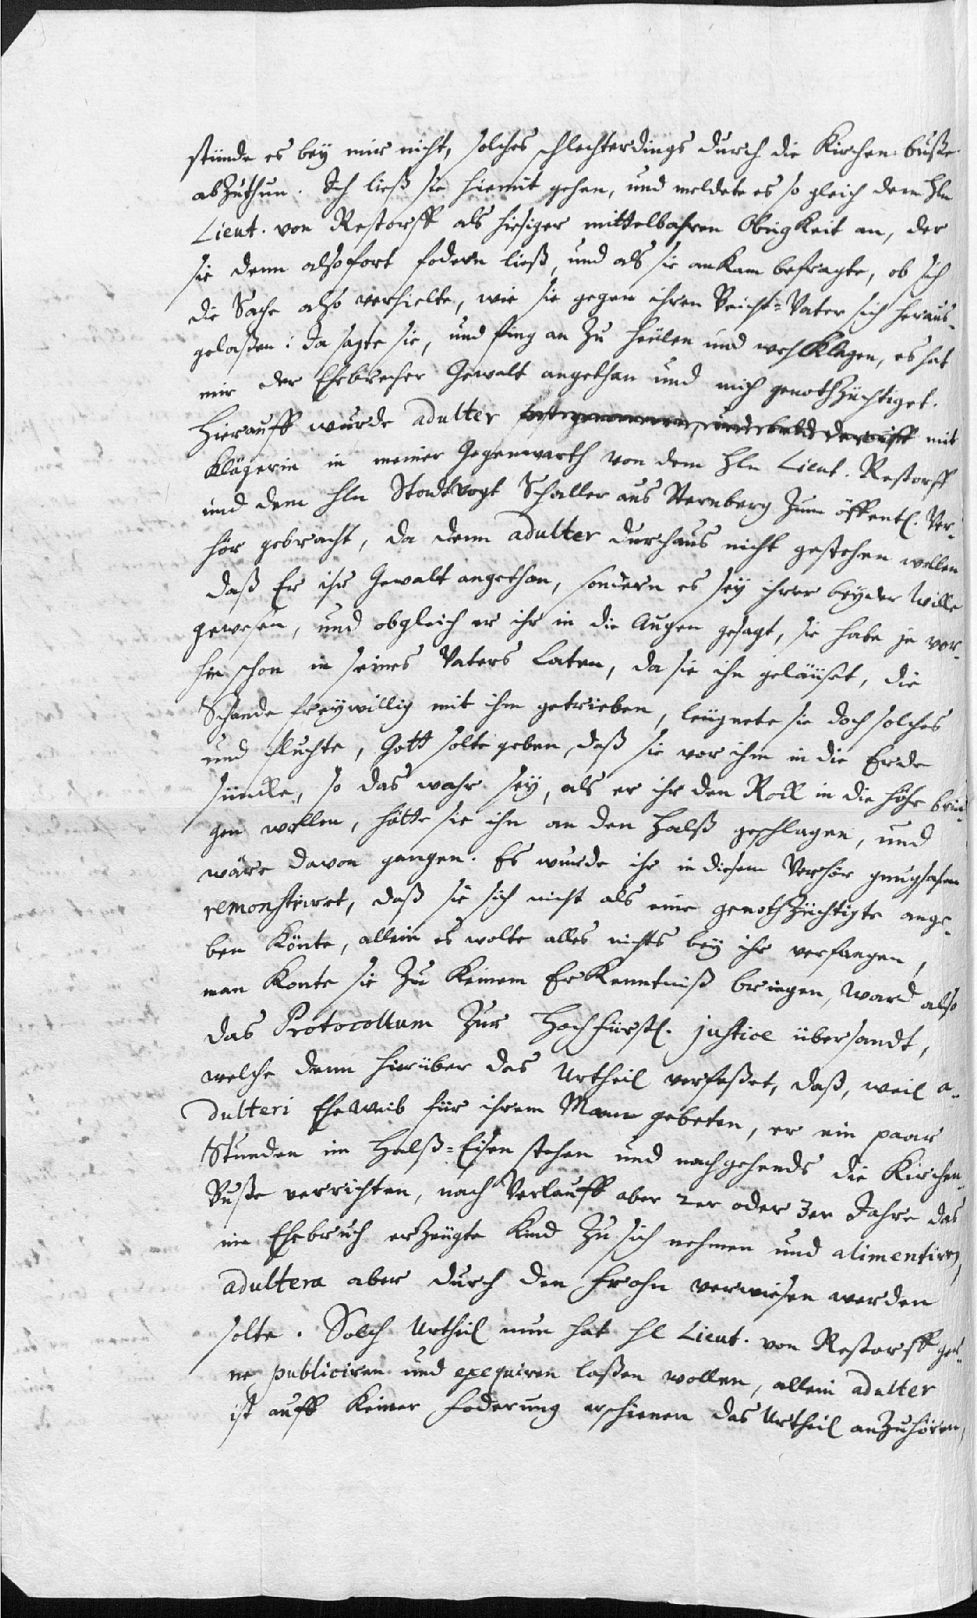 stünde es bey mir nicht, solches schlechterdings durch die Kirchen-buße
abzuthun. Ich ließ sie hiemit gehen, und meldete es so gleich dem Hln
Lieut. von Restorff als hiesiger mittelbahren Obrigkeit an, der
sie denn alsofort fodern ließ, und als sie ankam befragte, ob sich
die Sache also verhielte, wie sie gegen ihren Beicht-Vater sich heraus-
gelaßen: da sagte sie, und fing an zu heülen und wehklagen, es hat
mir der Ehebrecher Gewalt angethan und mich genothzüchtiget.
Hierauff wurde adulter mit
Klägerin in meiner Gegenwarth von dem Hln Lieut. Restorff
und dem Hln Stadtvogt Schaller aus Sternberg zum öffentl. Ver-
hör gebracht, da denn adulter durchaus nicht gestehen wollen
daß Er ihr Gewalt angethan, sondern es sey ihrer beyder Wille
gewesen, und obgleich er ihr in die Augen gesagt, sie habe je vor-
hin schon in seines Vaters Katen, da sie ihn geläuset, die
Schande freywillig mit ihm getrieben, leügnete sie doch solches
und fluchte, Gott solte geben, daß sie vor ihm in die Erde
süncke, so das wahr sey, als er ihr den Rock in die Höhe brin-
gen wollen, hätte sie ihn an den Halß geschlagen, und
wäre davon gangen. Es wurde ihr in diesem Verhör gnugsahm
remonstriret, daß sie sich nicht als eine genothzüchtigte ange-
ben könte, allein es wolte alles nichts bey ihr verfangen,
man konte sie zu keinem Erkenntniß bringen, ward also
das Protocollum zur Hochfürstl. justice übersandt,
welche denn hierüber das Urtheil verfaßet, daß, weil a-
dulteri Eheweib für ihrem Mann gebeten, er ein paar
Stunden im Halß-Eisen stehen und nachgehends die Kirchen-
Buße verrichten, nach Verlauff aber 2er oder 3er Jahre das
im Ehebruch erzeügte Kind zu sich nehmen und alimentiren,
adultera aber durch den Frohn verwiesen werden
solte. Solch Urtheil nun hat Hl Lieut. von Restorff ger-
ne publiciren und exequiren laßen wollen, allein adulter
ist auff keiner Foderung erschienen das Urtheil anzuhören,